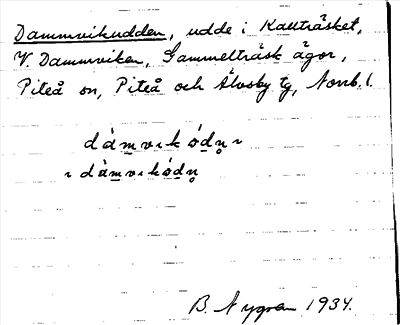 Dammvikudden, udde i Kallträsket,
V. Dammviken, Gammelträsk ägor,
Piteå sn, Piteå och Älvsby tg, Norrb. l.
dàm̲vikód̲n̥ i
i dàm̲vikód̲n̥
B. Nygren 1934.